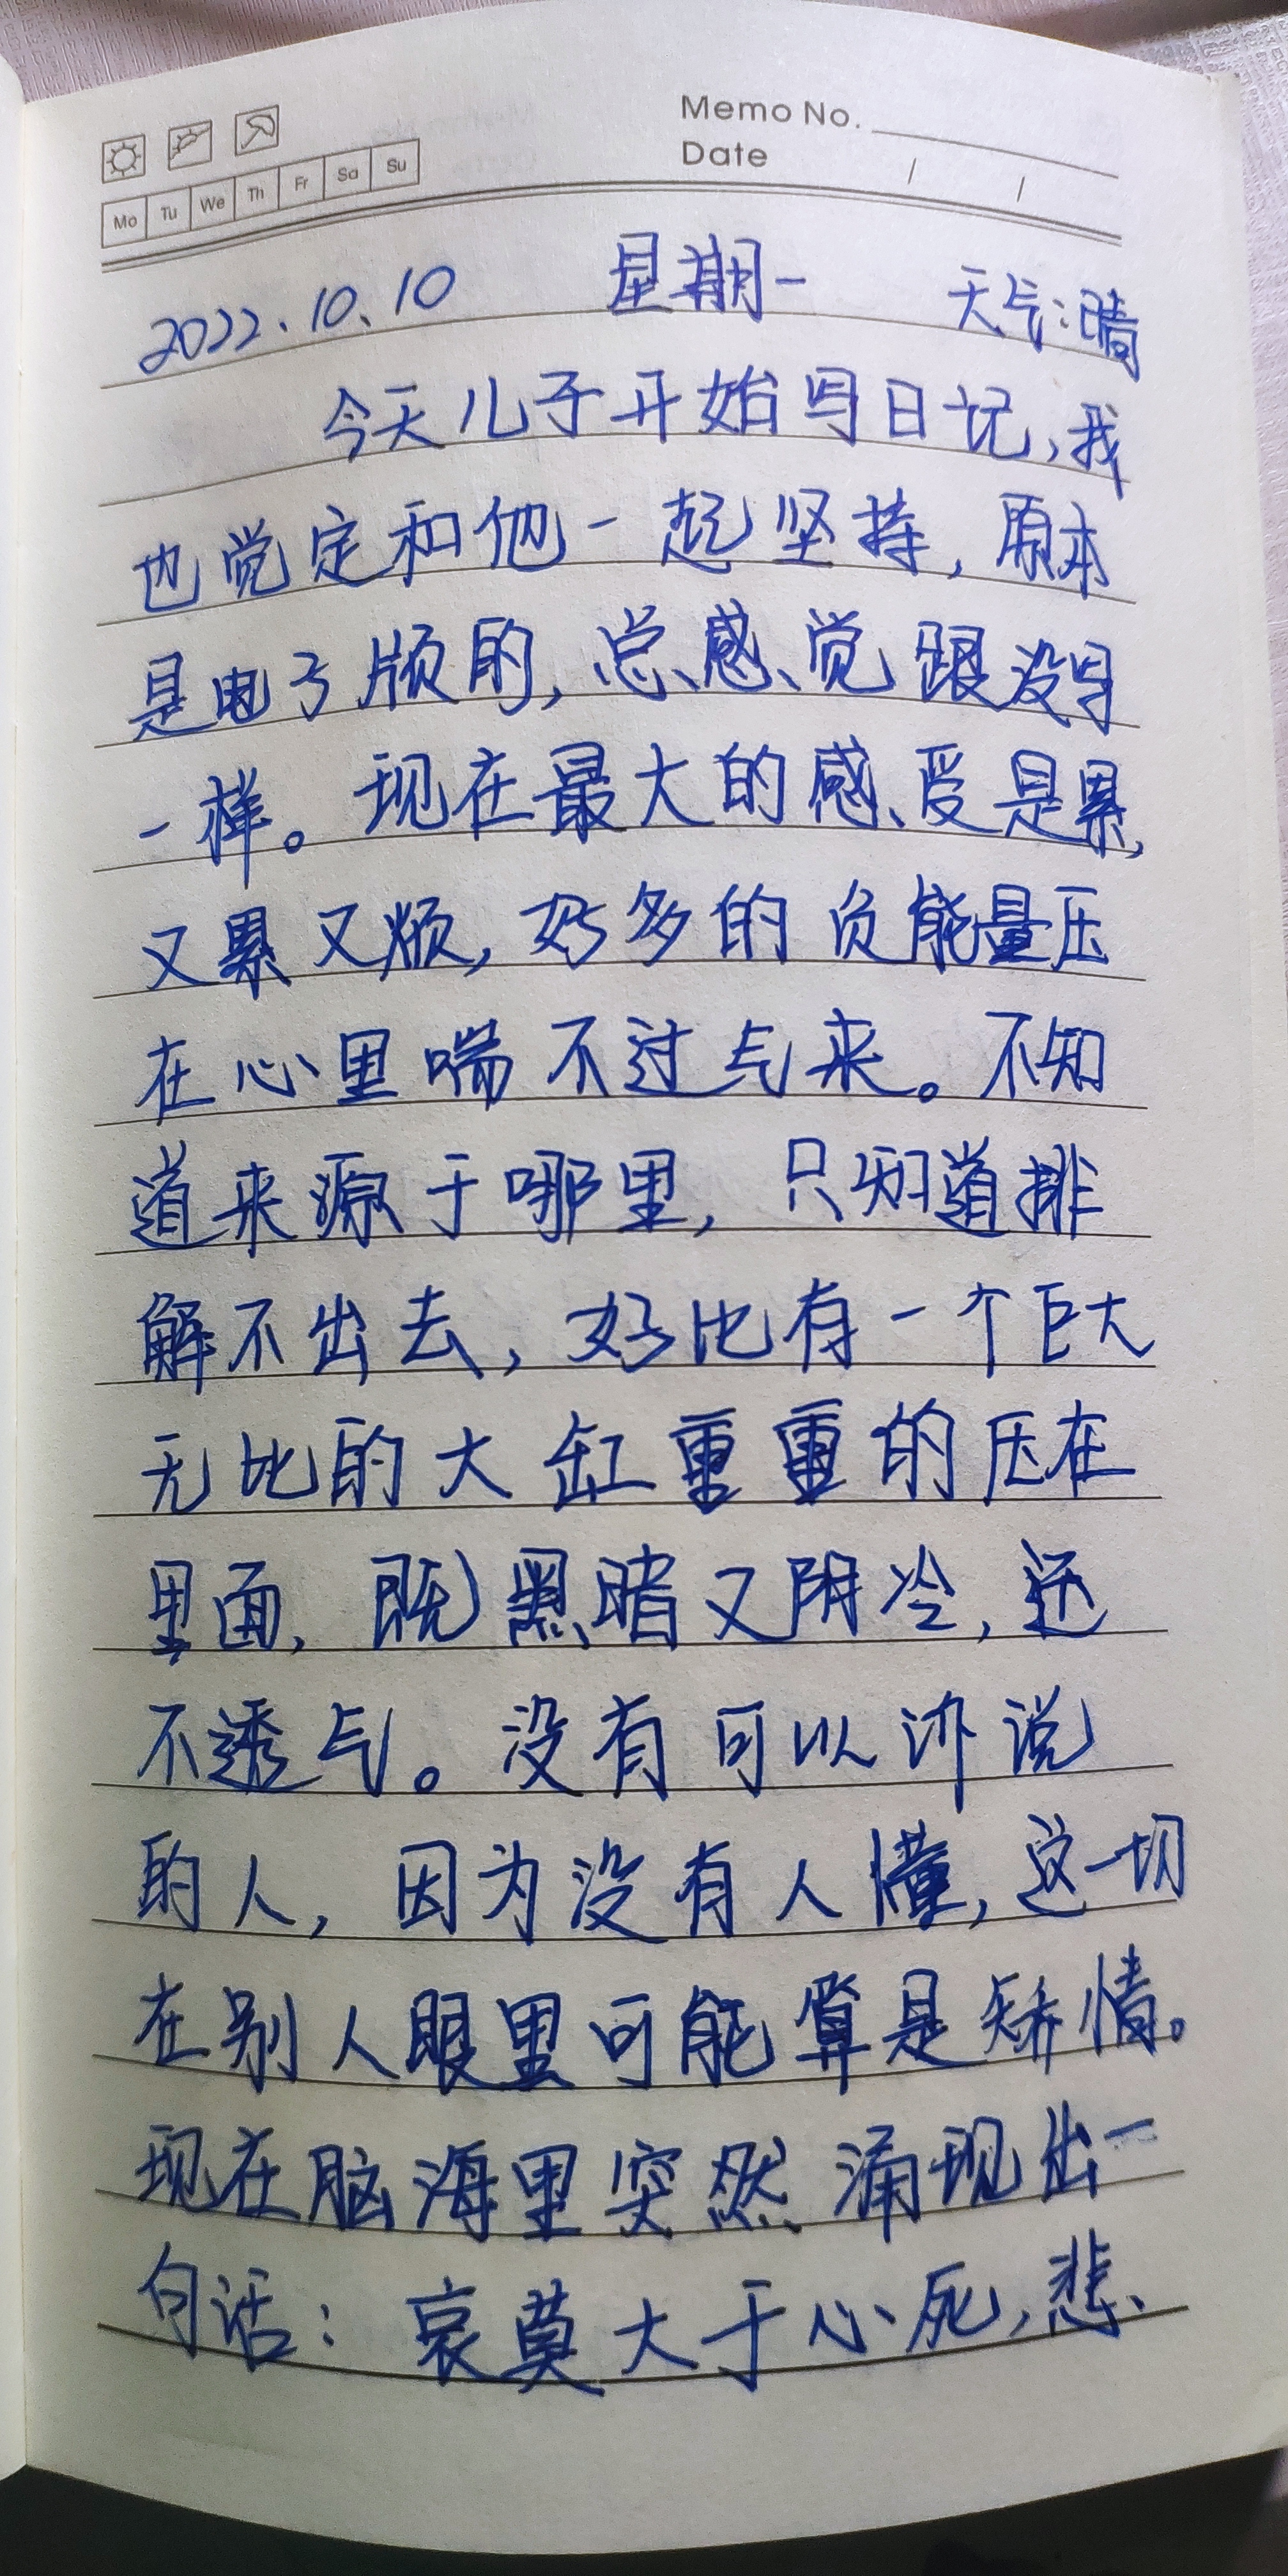 Memo No.
Mo Tu We Th Fr Sa Su
Date / /
2022.10.10 星期一 天气:晴
今天儿子开始写日记,我
也觉定和他一起坚持,原本
是电子版的,总感觉跟没写
一样。现在最大的感受是累,
又累又烦,好多的负能量压
在心里喘不过气来。不知
道来源于哪里,只知道排
解不出去,好比有一个巨大
无比的大缸重重的压在
里面,既黑暗又阴冷,还
不透气。没有可以诉说
的人,因为没有人懂,这一切
在别人眼里可能算是矫情。
现在脑海里突然涌现出一
句话:哀莫大于心死,悲